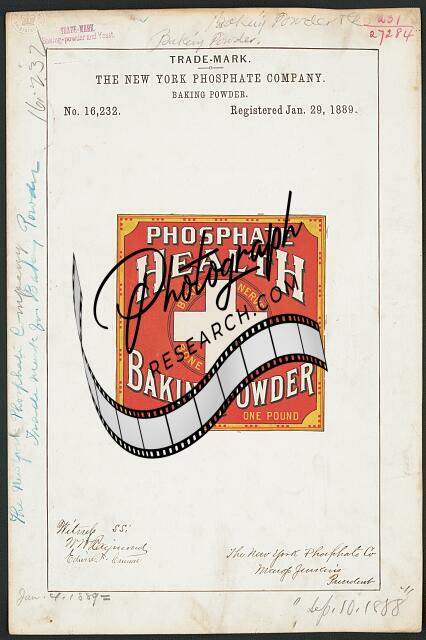 Baking Powder &c 231
27284
TRADE-MARK.
Baking-powder and Yeast.
Baking Powder.
16,232
TRADE-MARK.
THE NEW YORK PHOSPHATE COMPANY.
BAKING POWDER.
No. 16,232. Registered Jan. 29, 1889.
PHOSPHATE
HEALTH
BAKING POWDER
ONE POUND
Photograph
RESEARCH.COM
The New York Phosphate Company
Trade mark for Baking Powder
Witness SS:
The New York Phosphate Co
President
Jan. 4. 1889
"Sep. 10. 1888"